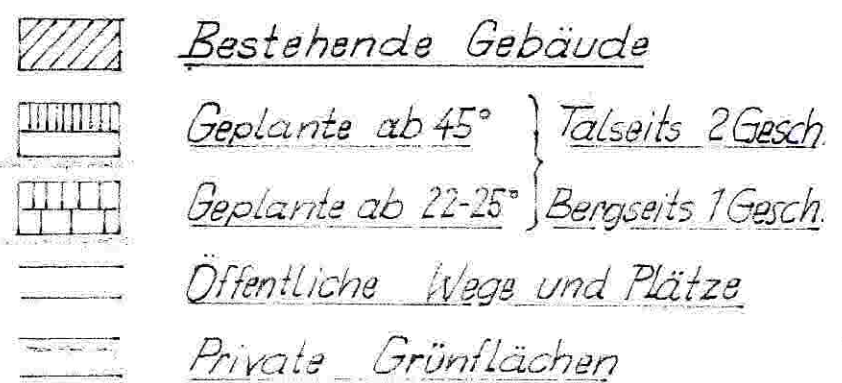 Bestehende Gebäude
Geplante ab 45° } Talseits 2 Gesch.
Geplante ab 22-25° } Bergseits 1 Gesch.
Öffentliche Wege und Plätze
Private Grünflächen